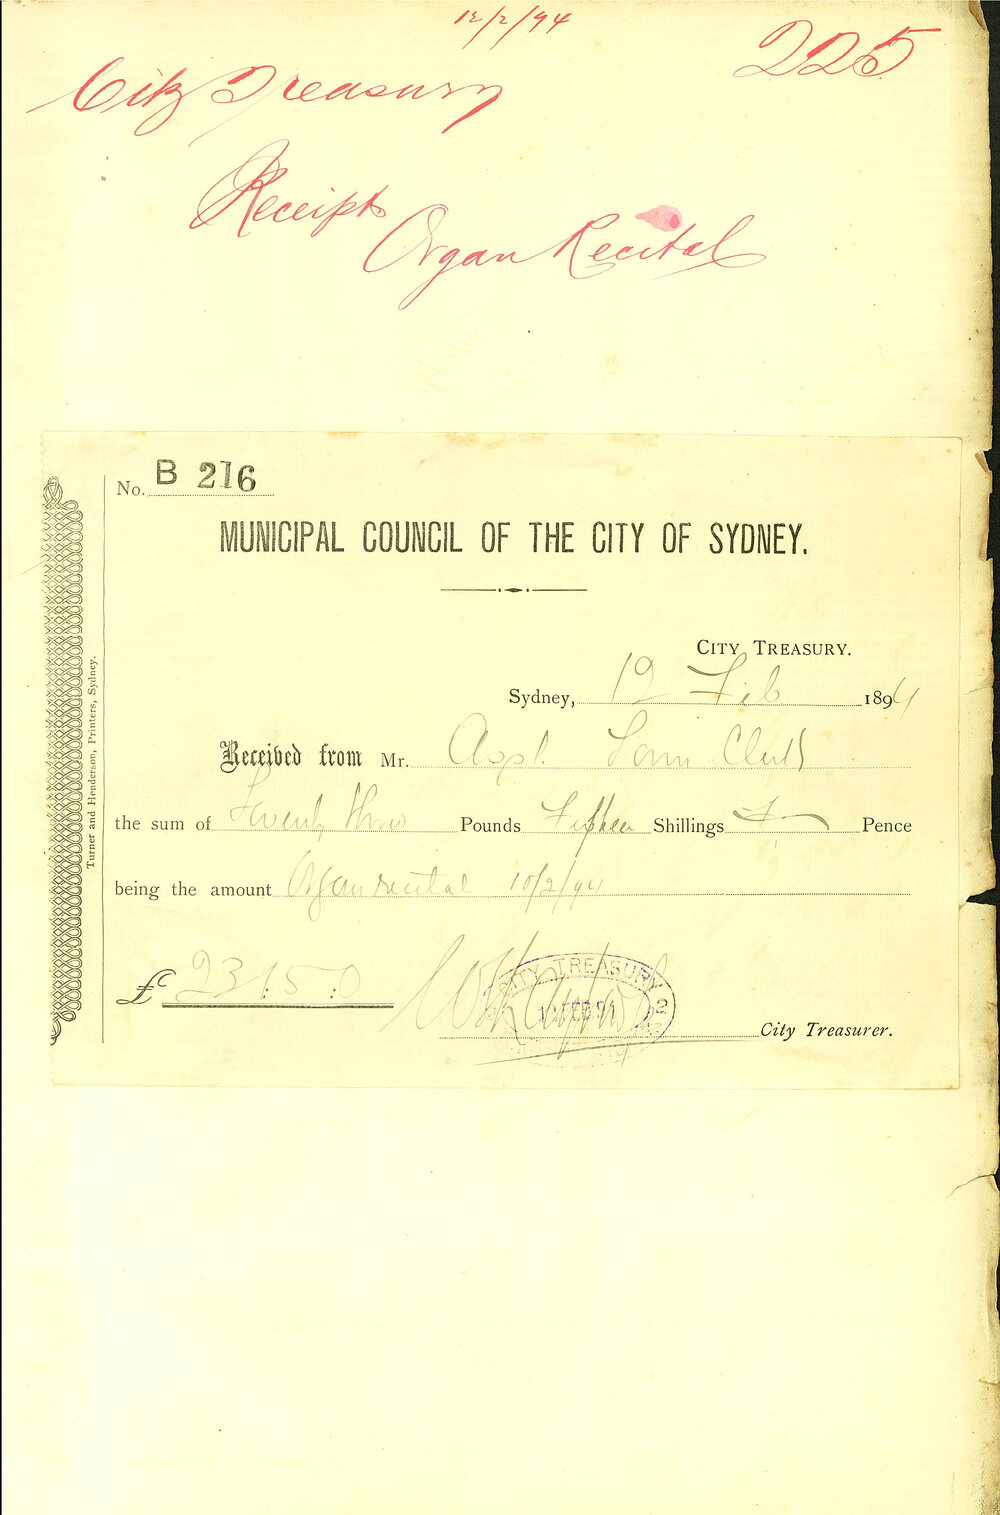 12/2/94
225
City Treasury
Receipts
Organ Recital
No. B 216
MUNICIPAL COUNCIL OF THE CITY OF SYDNEY.
CITY TREASURY.
Sydney, 12 Feb 1894
Received from Mr. Asst. Town Clerk
the sum of Twenty three Pounds Fifteen Shillings Pence
being the amount Organ recital 10/2/94
£ 23:15:0
CITY TREASURY
City Treasurer.
Turner and Henderson, Printers, Sydney.